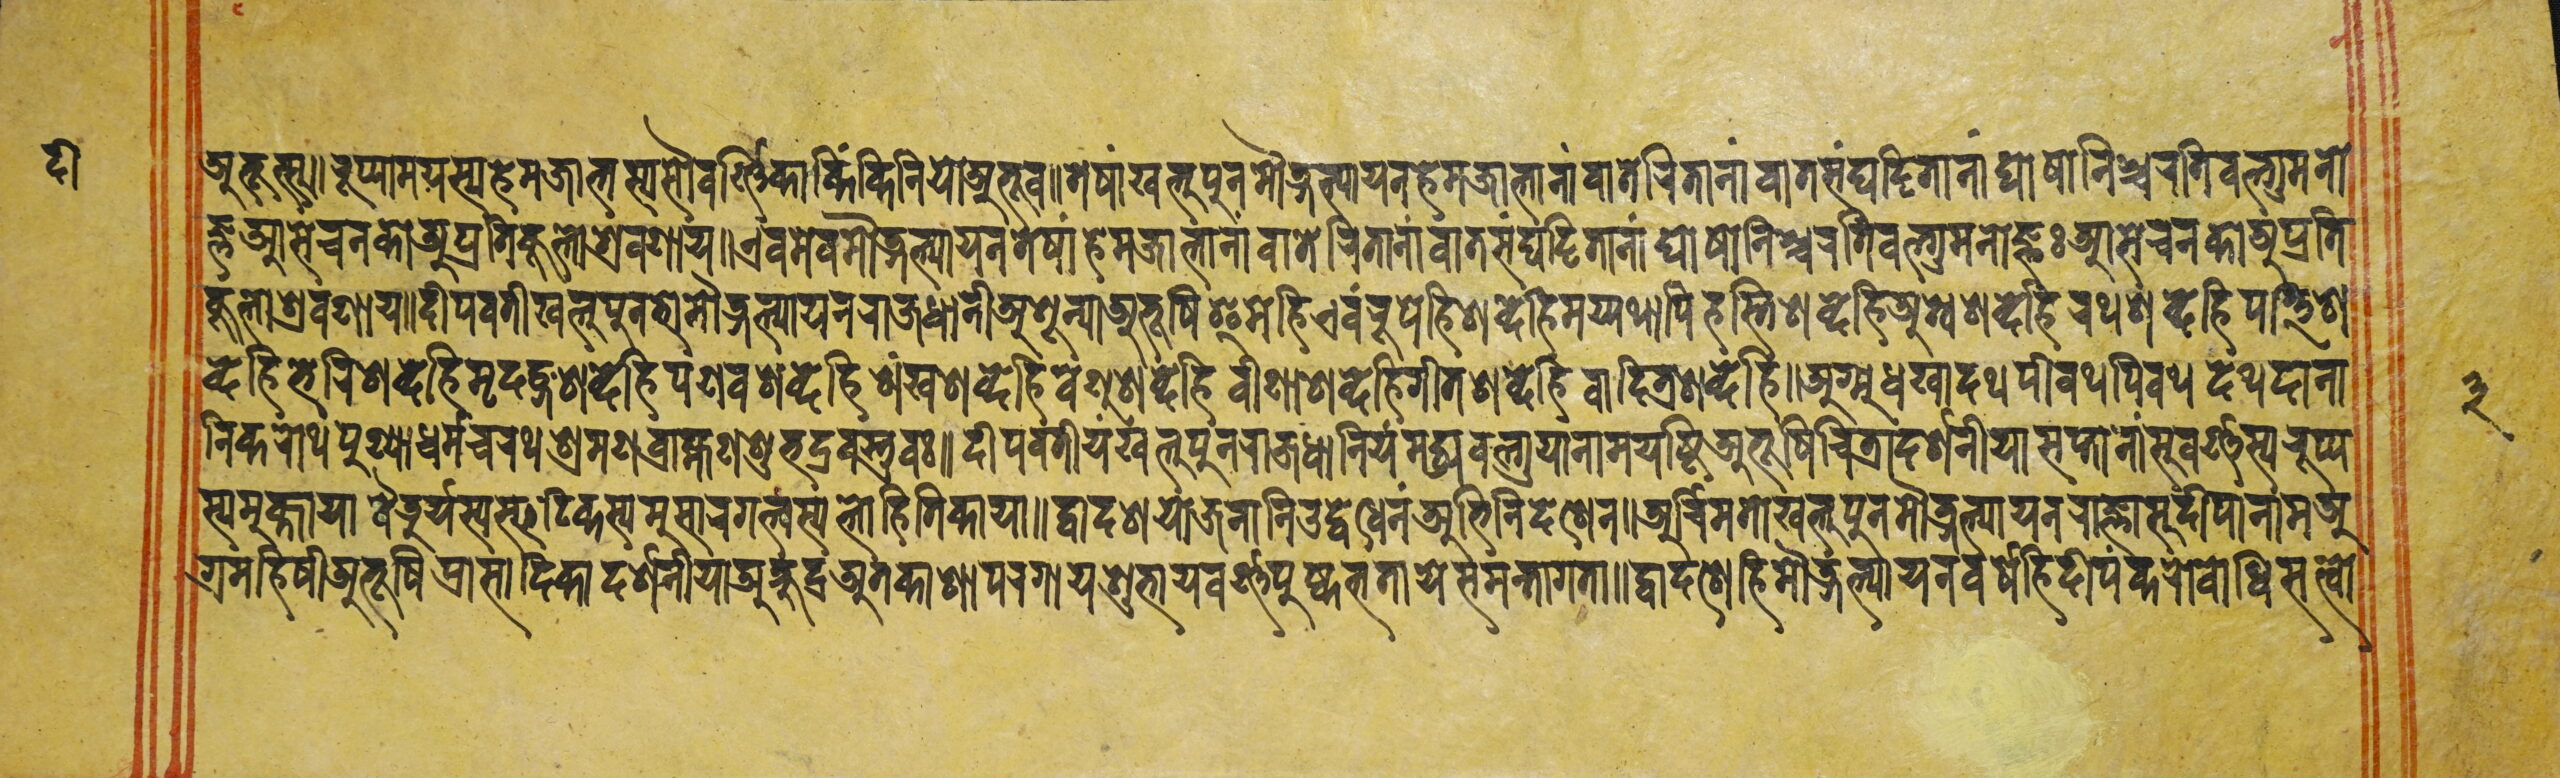 दी
अभूत्सु॥ रूप्यामयस्य हेमजालस्य सौवर्ण्णिका किंकिनियो अभूव॥ तेषां खलु पुन मौद्गल्यायन हेमजालानां वातेरितानां वातसंघट्टितानां घोषो निश्चरति वल्गुमनो
ज्ञ आसेचनको अप्रतिकूलो श्रवणाय॥ एवमेव मौद्गल्यायन तेषां हेमजालानां वातेरितानां वातसंघट्टितानां घोषो निश्चरति वल्गुमनोज्ञः आसेचनको अप्रति
कूलो श्रवणाय॥ दीपवती खलु पुन भो मौद्गल्यायन राजधानी अशून्या अभूषि इमेहि एवंरूपेहि शब्देहि मय्यथापि हस्तिशब्देहि अश्वशब्देहि रथशब्देहि पत्तिश
ब्देहि भेरिशब्देहि मृदङ्गशब्देहि पणवशब्देहि शंखशब्देहि वेणुशब्देहि वीणाशब्देहि गीतशब्देहि वादित्रशब्देहि॥ अश्नुध खादथ पीवथ पिवथ देथ दाना
३
नि करोथ पुण्या धर्मं चरथ श्रमणब्राह्मण शुभद्रवस्तुवः॥ दीपवतीयं खलु पुन राजधानियं मद्य वल्गुया नाम यष्टि अभूषि चित्रा दर्शनीया सप्तानां सुवर्ण्णस्य रूप्य
स्य मुक्ताया वैडूर्यस्य स्फटिकस्य मुसारगल्वस्य लोहितिकाया॥ द्वादश योजनानि उद्वेधेन अभिनिदेशेन॥ अर्चिमतो खलु पुन मौद्गल्यायन राज्ञा सुदीपा नाम अ
ग्रमहिषी अभूषि प्रासादिका दर्शनीया अक्षुद्र अतकाशा परगाय शुभाय वर्ण्णपुष्कलताये समन्तागता॥ द्वादशेहि मौद्गल्यायन वर्षेहि दीपंकरो बोधिसत्वो